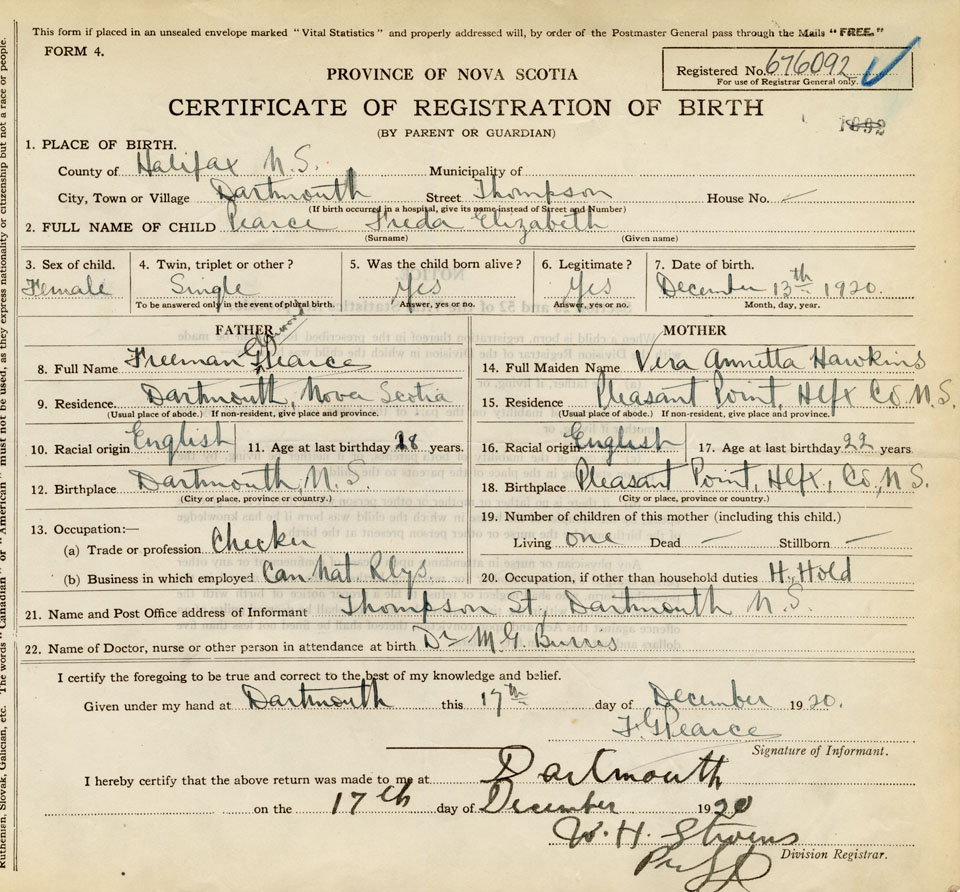 This form if placed in an unsealed envelope marked "Vital Statistics" and properly addressed will, by order of the Postmaster General pass through the Mails "FREE."
FORM 4.
Registered No. 676092
For use of Registrar General only.
PROVINCE OF NOVA SCOTIA
CERTIFICATE OF REGISTRATION OF BIRTH
(BY PARENT OR GUARDIAN)
1. PLACE OF BIRTH.
County of Halifax N.S. Municipality of
City, Town or Village Dartmouth Street Thompson House No. —
(If birth occurred in a hospital, give its name instead of Street and Number)
2. FULL NAME OF CHILD Pearce Freda Elizabeth
(Surname) (Given name)
3. Sex of child. 4. Twin, triplet or other? 5. Was the child born alive? 6. Legitimate? 7. Date of birth.
Female Single Yes Yes December 13th 1920.
To be answered only in the event of plural birth. Answer, yes or no. Answer, yes or no. Month, day, year.
FATHER MOTHER
8. Full Name Freeman G Pearce 14. Full Maiden Name Vera Annetta Hawkins
9. Residence Dartmouth, Nova Scotia 15. Residence Pleasant Point, Hlfx Co. N.S.
(Usual place of abode.) If non-resident, give place and province. (Usual place of abode.) If non-resident, give place and province.
10. Racial origin English 11. Age at last birthday 28 years. 16. Racial origin English 17. Age at last birthday 22 years
12. Birthplace Dartmouth, N.S. 18. Birthplace Pleasant Point, Hlfx, Co, N.S.
(City or place, province or country.) (City or place, province or country.)
13. Occupation:— 19. Number of children of this mother (including this child.)
(a) Trade or profession Checker Living one Dead — Stillborn —
(b) Business in which employed Can. Nat. Rlys. 20. Occupation, if other than household duties H. Hold
21. Name and Post Office address of Informant Thompson St, Dartmouth N.S.
22. Name of Doctor, nurse or other person in attendance at birth Dr M.G. Burris
I certify the foregoing to be true and correct to the best of my knowledge and belief.
Given under my hand at Dartmouth this 17th day of December 1920.
F G Pearce
Signature of Informant.
I hereby certify that the above return was made to me at Dartmouth
on the 17th day of December 1920
W. H. Stevens
Division Registrar.
Ruthenian, Slovak, Galician, etc. The words "Canadian" or "American" must not be used, as they express nationality or citizenship but not a race or people.